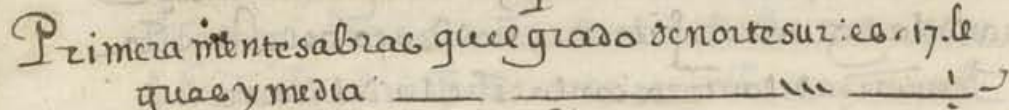 Primeramentesabras queelgrado denortesur: es. 17. le
guas y media